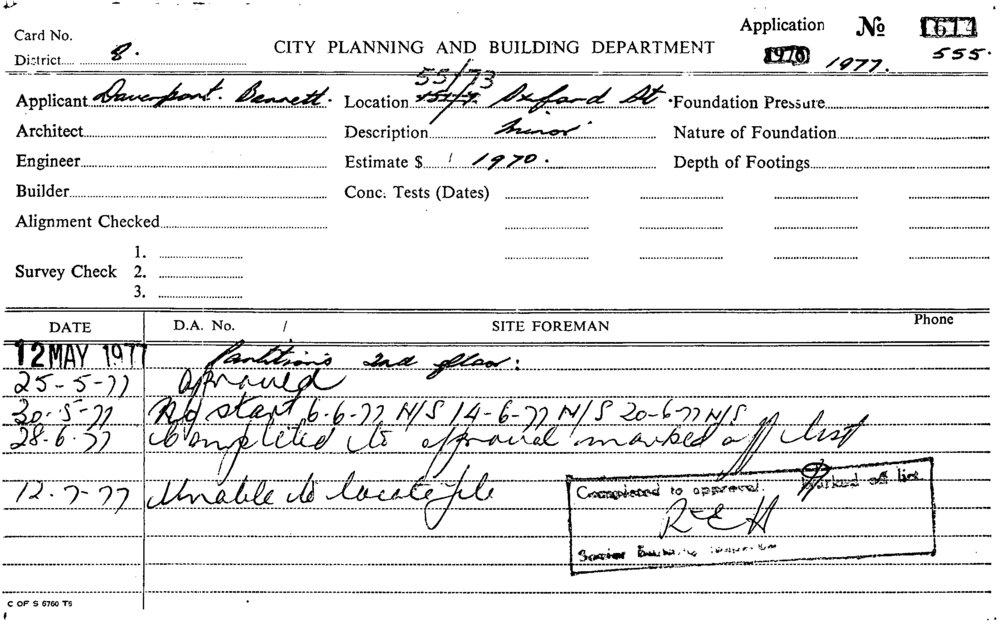 Card No.
Application No 1614
District 8.
CITY PLANNING AND BUILDING DEPARTMENT
1970 1977. 555.
55/73
Applicant Davenport. Bennett. Location Oxford St. Foundation Pressure
Architect Description minor Nature of Foundation
Engineer Estimate $ 1970. Depth of Footings
Builder Conc. Tests (Dates)
Alignment Checked
1.
Survey Check 2.
3.
DATE D.A. No. / SITE FOREMAN Phone
12 MAY 1977 Partitions 2nd floor:
25-5-77 approved
30-5-77 No start 6-6-77 N/S 14-6-77 N/S 20-6-77 N/S
28-6-77 Completed to approval marked off list
12-7-77 Unable to locate file
Completed to approval. Marked off list
R E H
Senior Building Inspector
C OF S 6760 T5